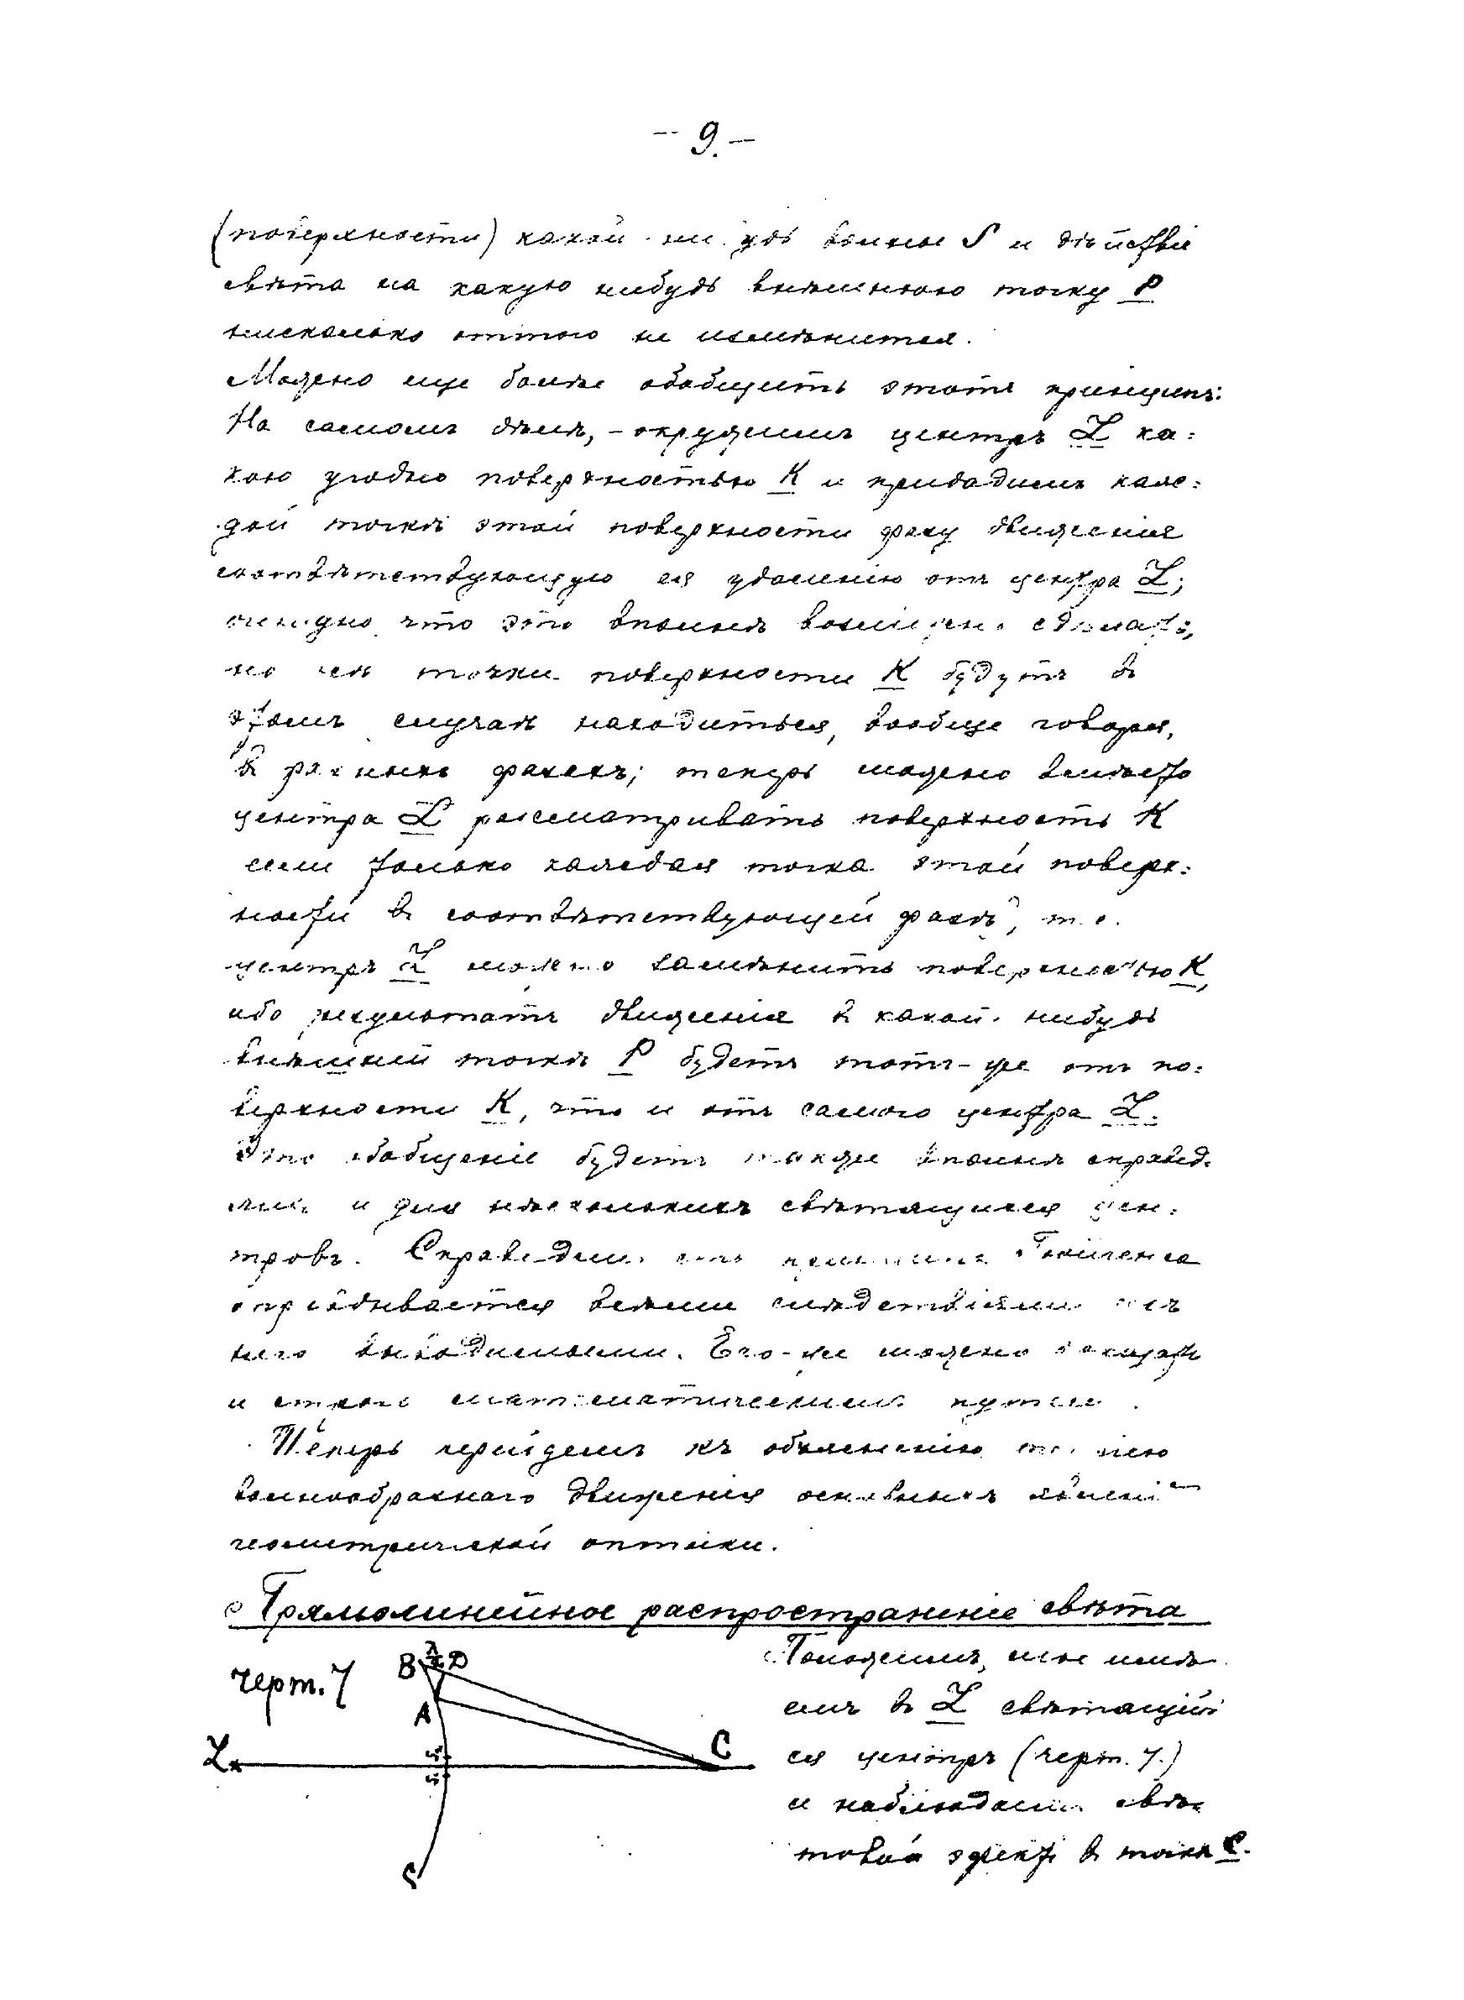 — 9. —
(поверхности) какой ни будь волны S и дѣйствіе
свѣта на какую нибудь внѣшнюю точку P
нисколько оттого не измѣнится.
Можно еще болѣе обобщить этотъ принципъ:
На самомъ дѣлѣ, – окружимъ центръ L ка=
кою угодно поверхностью K и придадимъ каж=
дой точкѣ этой поверхности фазу движенія
соотвѣтствующую ея удаленію отъ центра L;
очевидно что это вполнѣ возможно сдѣлать,
но всѣ точки поверхности K будутъ в
этомъ случаѣ находиться, вообще говоря,
в разныхъ фазахъ; теперь можно вмѣсто
центра L разсматривать поверхность K
если только каждая точка этой поверх=
ности в соотвѣтствующей фазѣ, т. е.
центръ L можно замѣнить поверхностью K,
ибо результатъ движенія в какой нибудь
внѣшней точкѣ P будетъ тотъ-же отъ по=
верхности K, что и отъ самого центра L.
Это обобщеніе будетъ также вполнѣ справед=
ливо и для нѣсколькихъ свѣтящихся цен=
тровъ. Справедливость принципа Гюйгенса
оправдывается всѣми слѣдствіями изъ
него выводимыми. Его-же можно доказать
и строго математическимъ путемъ.
Теперь перейдемъ къ объясненію теоріею
волнообразнаго движенія основныхъ явленій
геометрической оптики.
Прямолинейное распространеніе свѣта
черт. 7
B λ/2 D
A
L
C
S
Положимъ, мы имѣ=
емъ в L свѣтящій=
ся центръ (черт. 7.)
и наблюдаемъ свѣ=
товой эфектъ в точкѣ C.